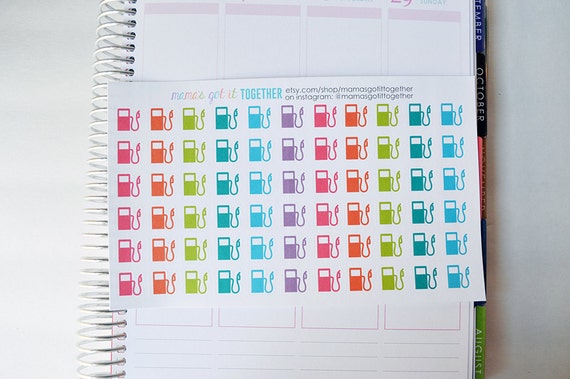 29
SUNDAY
mama's got it TOGETHER
etsy.com/shop/mamasgotittogether
on instagram: @mamasgotittogether
OCTOBER
AUGUST